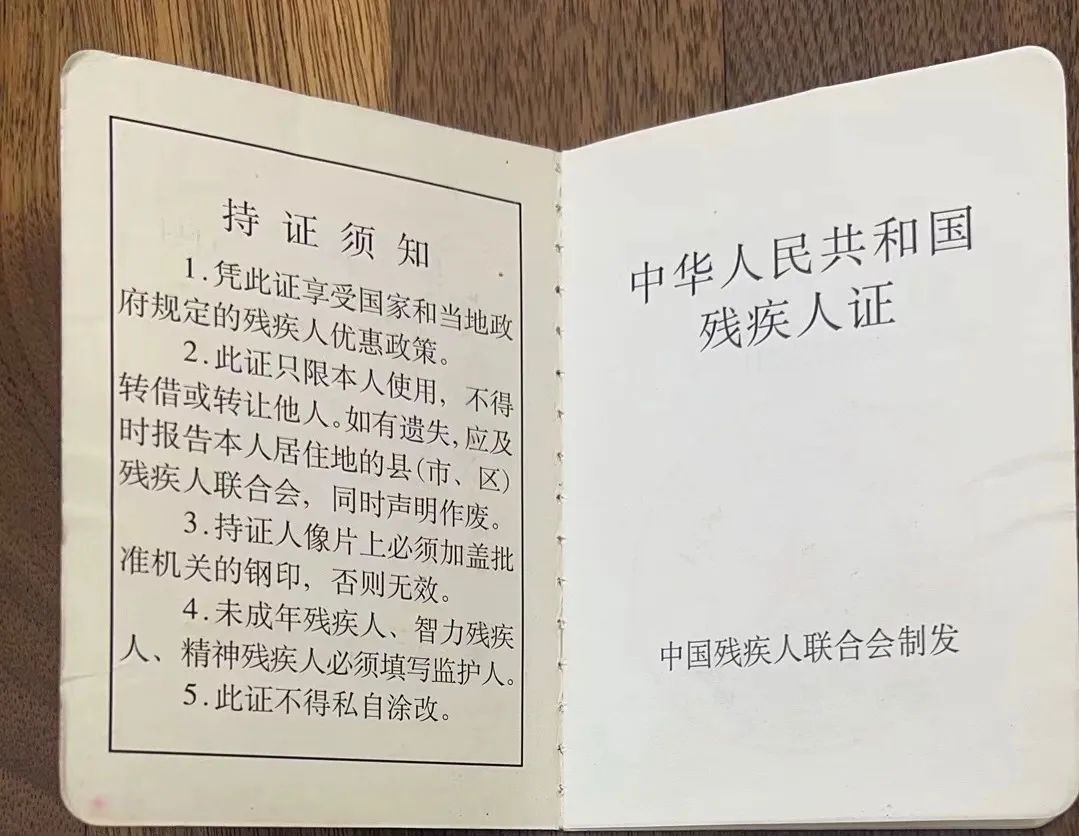 持证须知
1.凭此证享受国家和当地政
府规定的残疾人优惠政策。
2.此证只限本人使用，不得
转借或转让他人。如有遗失,应及
时报告本人居住地的县(市、区)
残疾人联合会，同时声明作废。
3.持证人像片上必须加盖批
准机关的钢印，否则无效。
4.未成年残疾人、智力残疾
人、精神残疾人必须填写监护人。
5.此证不得私自涂改。
中华人民共和国
残疾人证
中国残疾人联合会制发